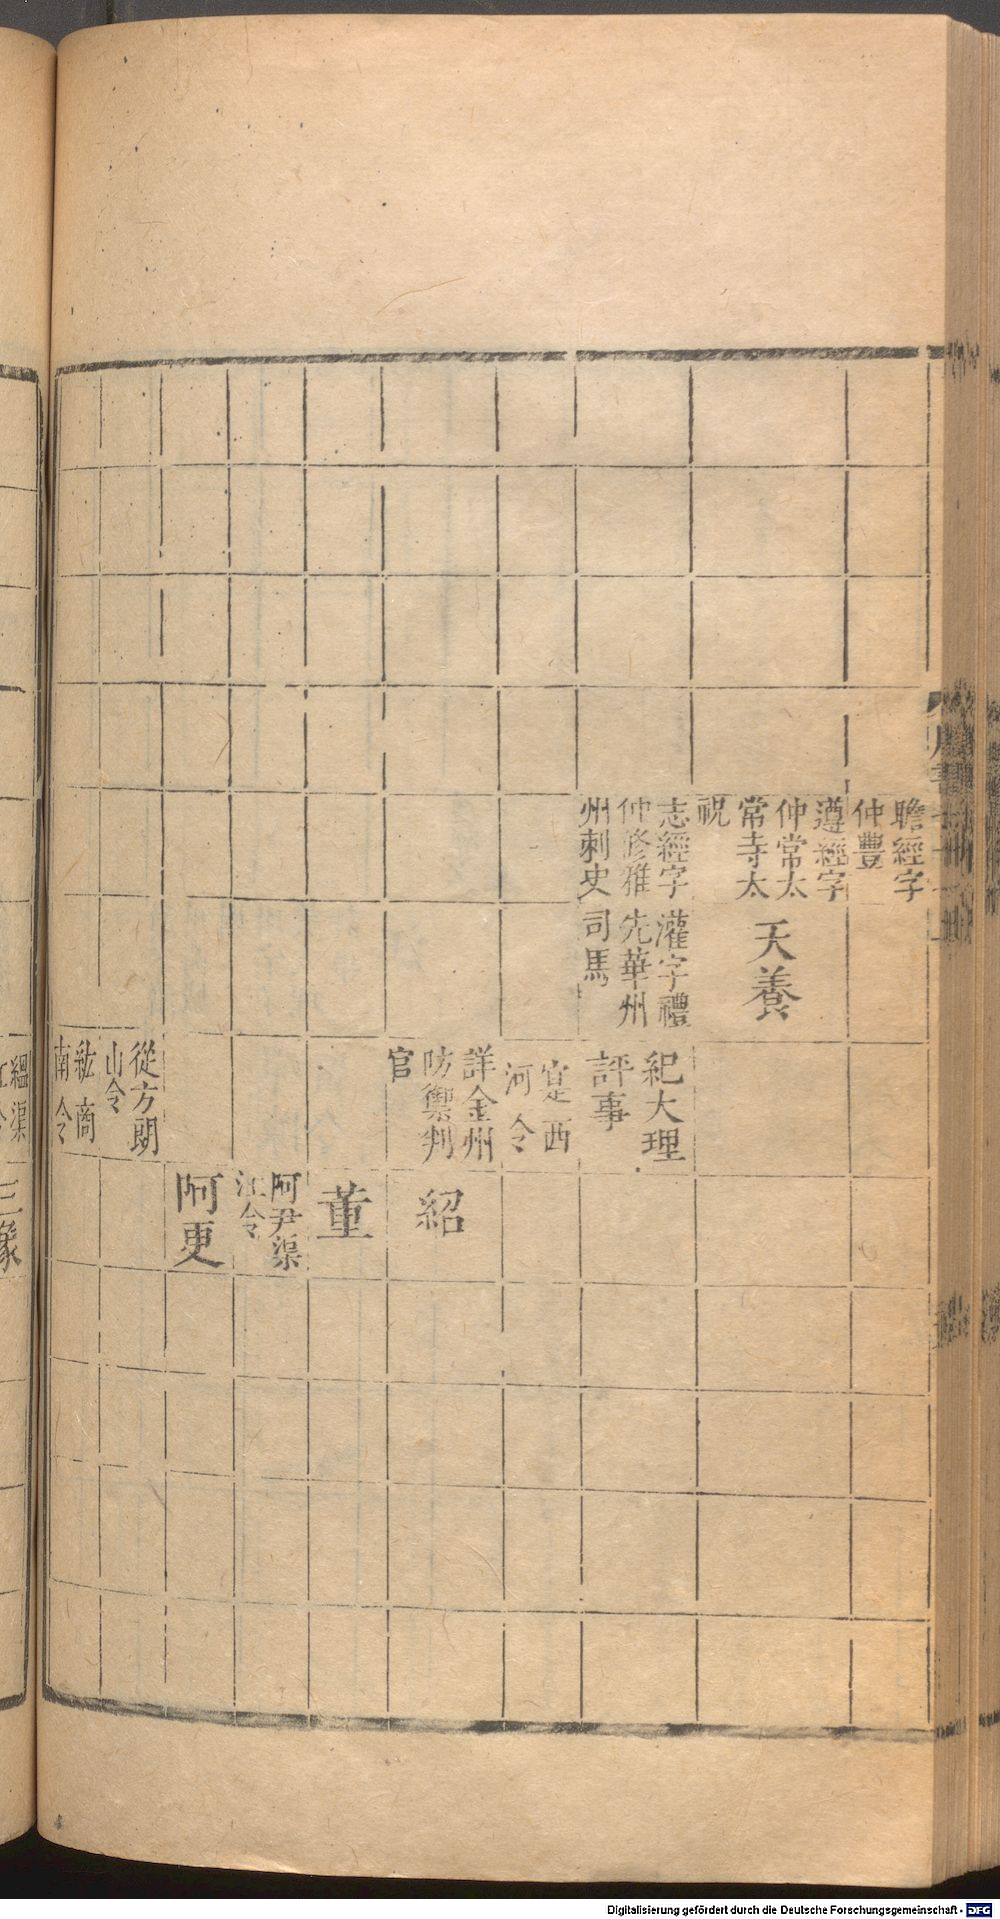 瞻經字
仲豐
遵經字
仲常太
常寺太
祝
天養
志經字
仲修雅
州刺史
灌字禮
先華州
司馬
紀大理
評事
寔西
河令
詳金州
防禦判
官
紹
董
阿尹渠
江令
阿更
從方朗
山令
紘商
南令
縕渠
江令
三𤣥
Digitalisierung gefördert durch die Deutsche Forschungsgemeinschaft - DFG